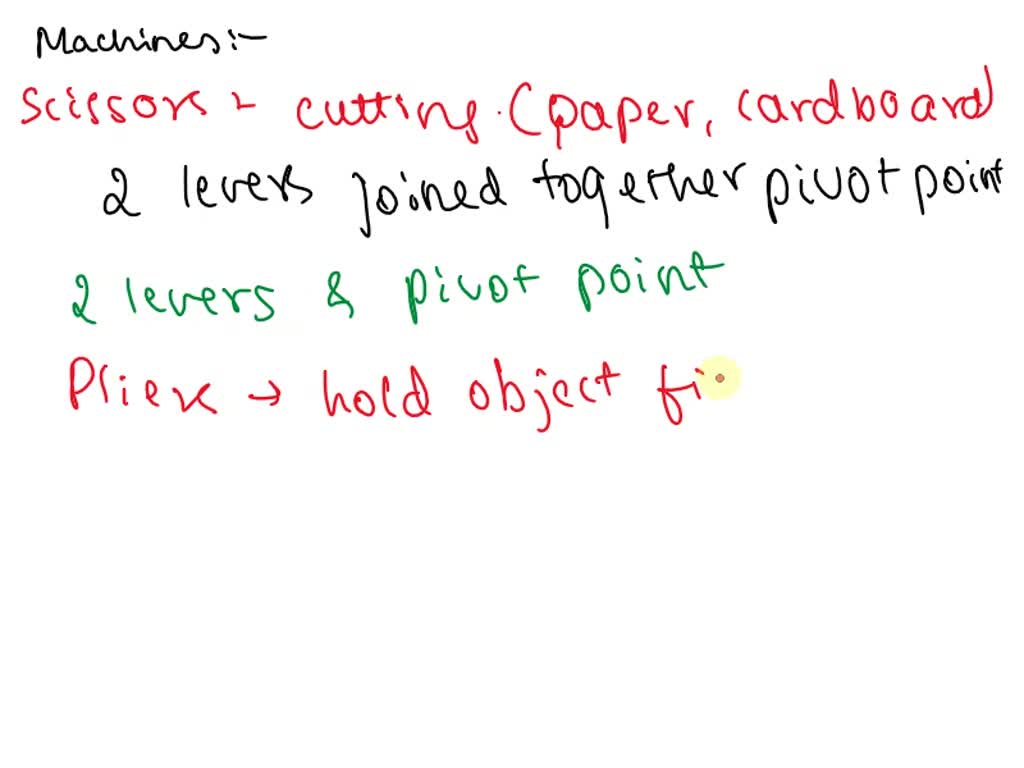 Machines:-
Scissors - cutting. (paper, cardboard)
2 levers joined together pivot point
2 levers & pivot point
Pliers → hold object fi